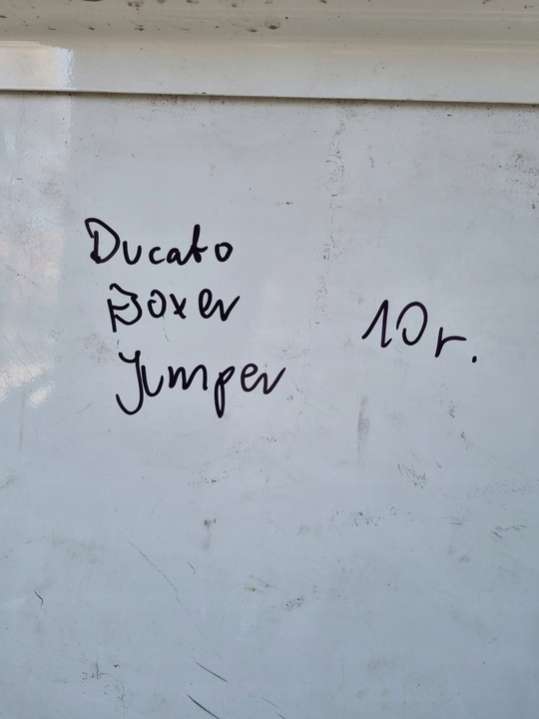 Ducato
Boxer
Jumper
10r.